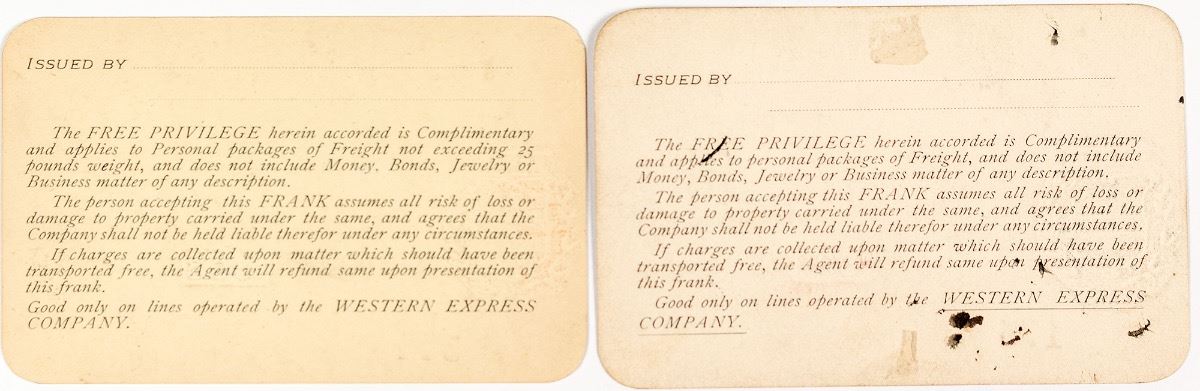 ISSUED BY
The FREE PRIVILEGE herein accorded is Complimentary
and applies to Personal packages of Freight not exceeding 25
pounds weight, and does not include Money, Bonds, Jewelry or
Business matter of any description.
The person accepting this FRANK assumes all risk of loss or
damage to property carried under the same, and agrees that the
Company shall not be held liable therefor under any circumstances.
If charges are collected upon matter which should have been
transported free, the Agent will refund same upon presentation of
this frank.
Good only on lines operated by the WESTERN EXPRESS
COMPANY.
ISSUED BY
The FREE PRIVILEGE herein accorded is Complimentary
and applies to personal packages of Freight, and does not include
Money, Bonds, Jewelry or Business matter of any description.
The person accepting this FRANK assumes all risk of loss or
damage to property carried under the same, and agrees that the
Company shall not be held liable therefor under any circumstances.
If charges are collected upon matter which should have been
transported free, the Agent will refund same upon presentation of
this frank.
Good only on lines operated by the WESTERN EXPRESS
COMPANY.